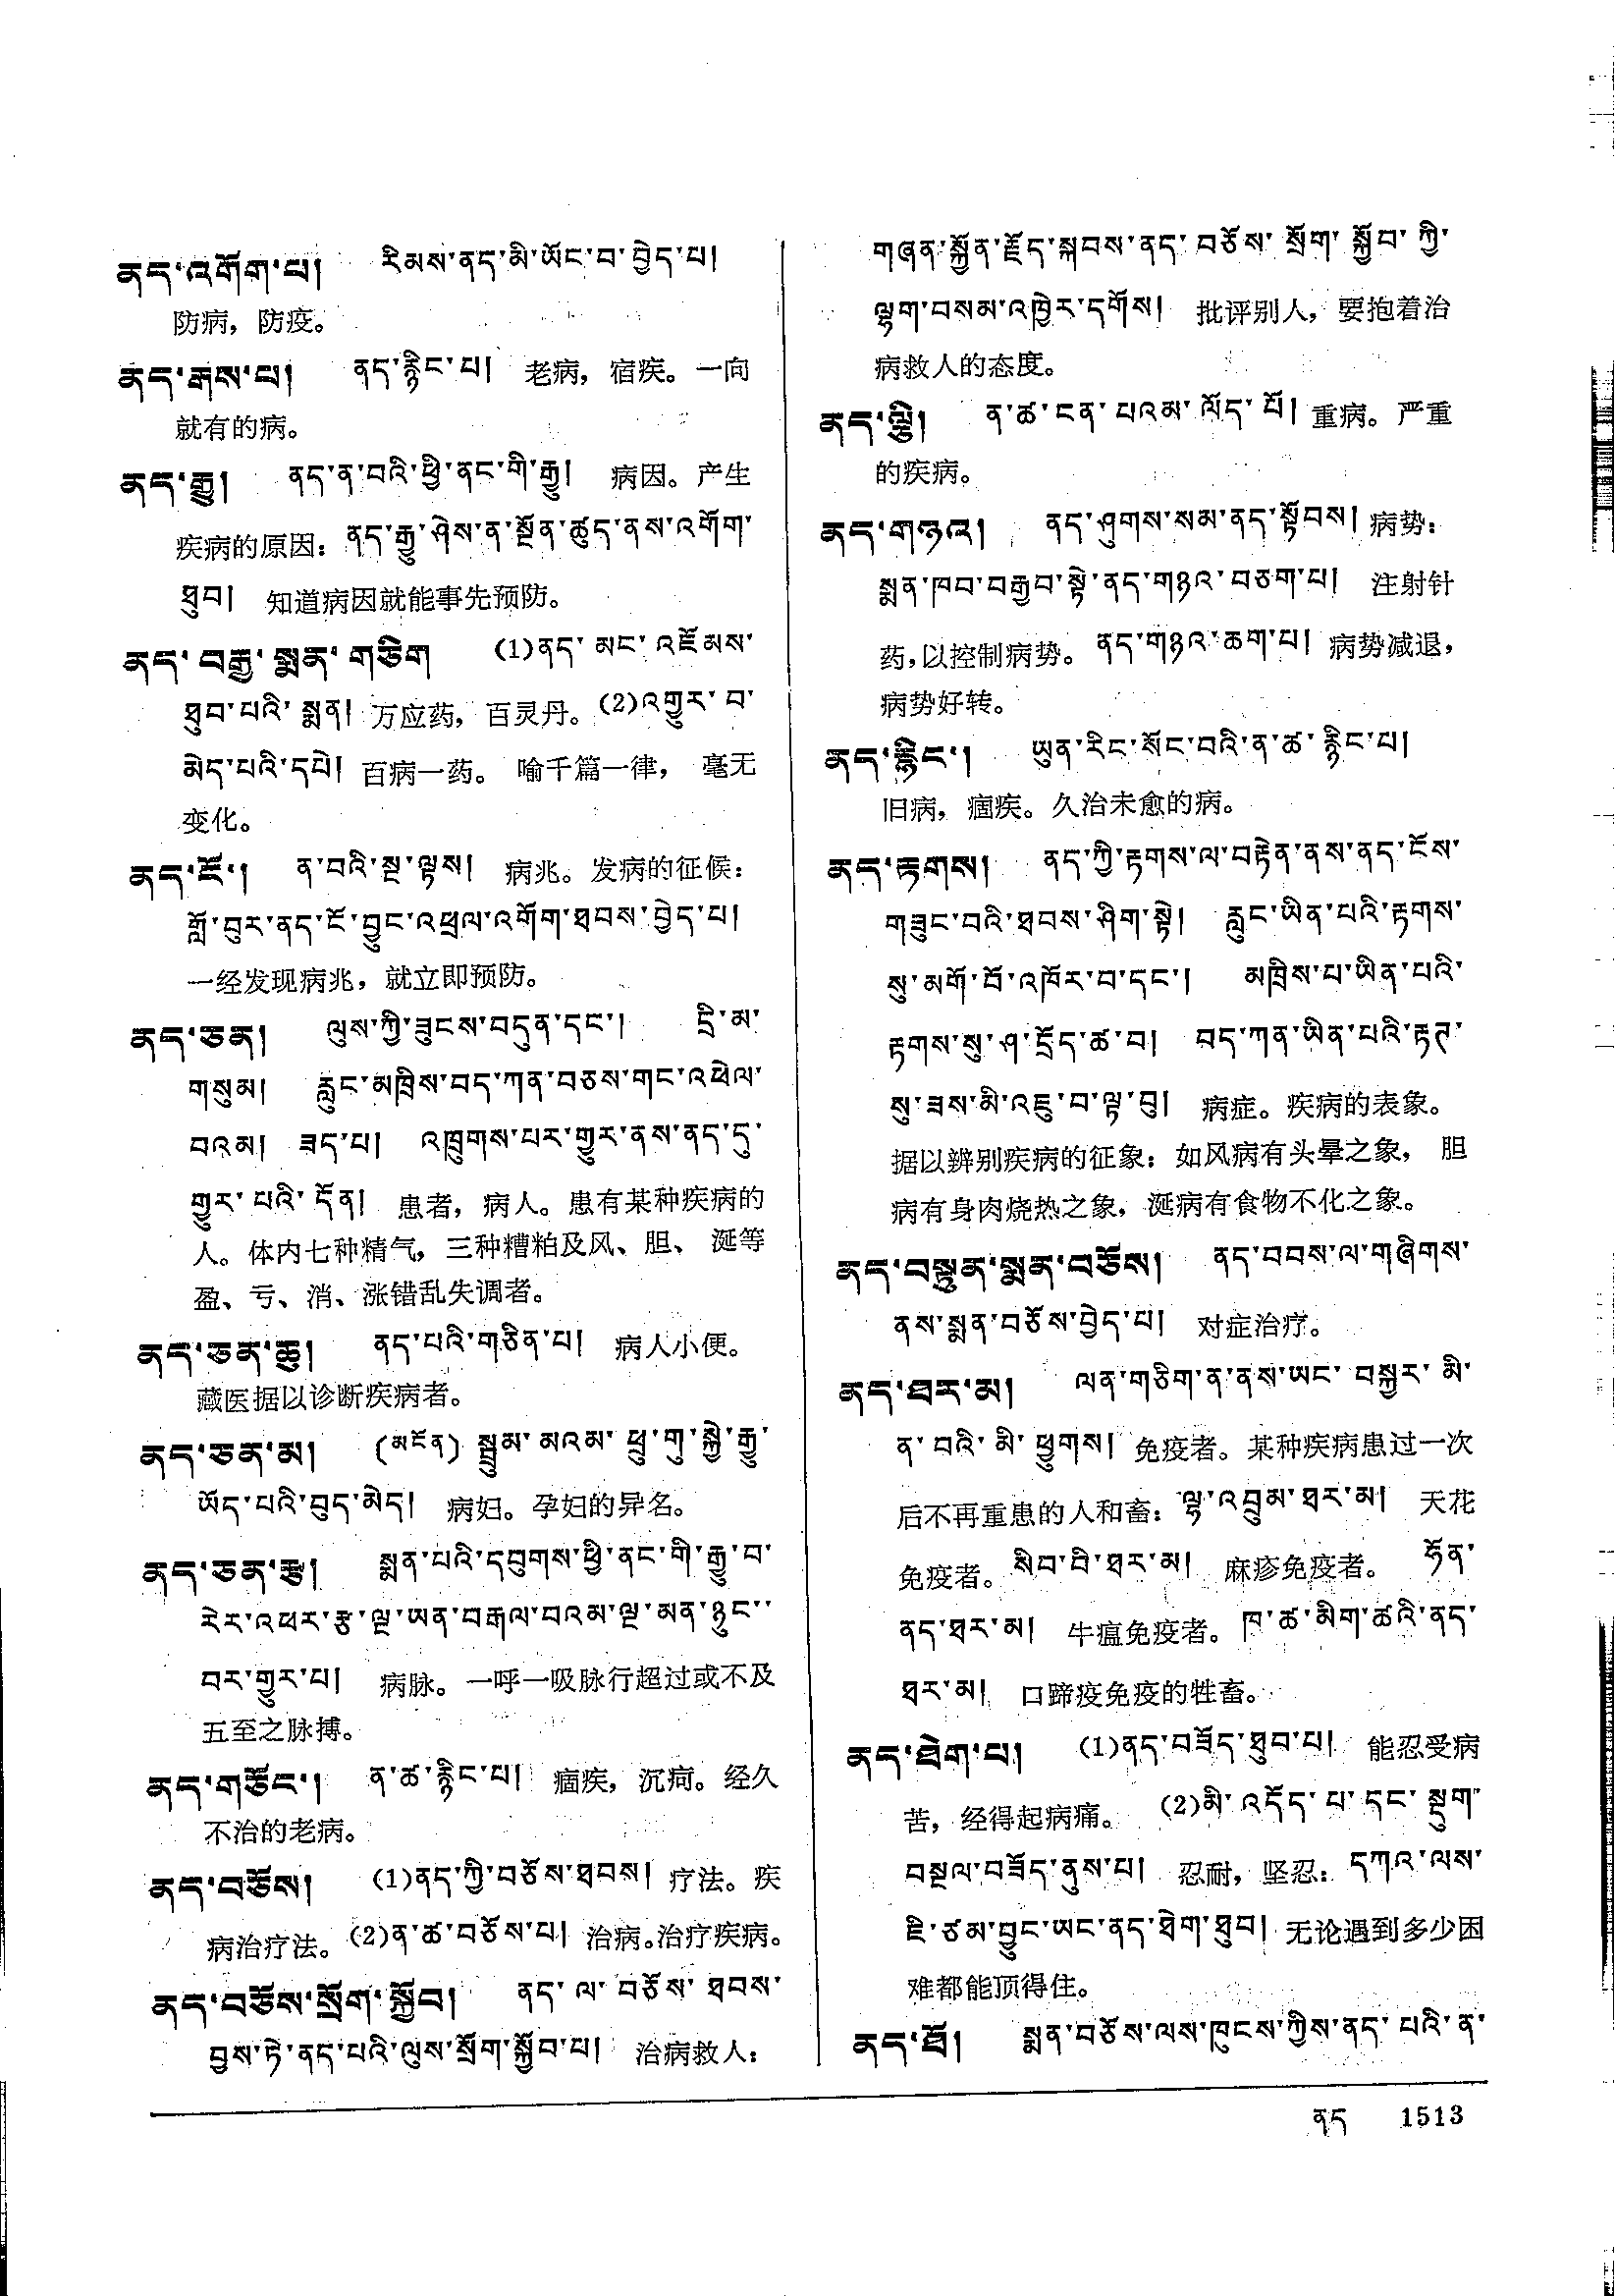 ནད་འགོག་པ། རིམས་ནད་མི་ཡོང་བ་བྱེད་པ།
防病，防疫。
ནད་རྒས་པ། ནད་རྙིང་པ། 老病，宿疾。一向
就有的病。
ནད་རྒྱུ། ནད་ན་བའི་ཕྱི་ནང་གི་རྒྱུ། 病因。产生
疾病的原因：ནད་རྒྱུ་ཤེས་ན་སྔོན་ཚུད་ནས་འགོག་
ཐུབ། 知道病因就能事先预防。
ནད་བརྒྱ་སྨན་གཅིག (1)ནད་མང་འཇོམས་
ཐུབ་པའི་སྨན། 万应药，百灵丹。(2)འགྱུར་བ་
མེད་པའི་དཔེ། 百病一药。 喻千篇一律， 毫无
变化。
ནད་ངོ་། ན་བའི་སྔ་ལྟས། 病兆。发病的征候：
གློ་བུར་ནད་ངོ་བྱུང་འཕྲལ་འགོག་ཐབས་བྱེད་པ།
一经发现病兆，就立即预防。
ནད་ཅན། ལུས་ཀྱི་ཟུངས་བདུན་དང་། དྲི་མ་
གསུམ། རླུང་མཁྲིས་བད་ཀན་བཅས་གང་འཕེལ་
བའམ། ཟད་པ། འཁྲུགས་པར་གྱུར་ནས་ནད་དུ་
གྱུར་པའི་དོན། 患者，病人。患有某种疾病的
人。体内七种精气，三种糟粕及风、胆、 涎等
盈、亏、消、涨错乱失调者。
ནད་ཅན་ཆུ། ནད་པའི་གཅིན་པ། 病人小便。
藏医据以诊断疾病者。
ནད་ཅན་མ། (མངོན) སྦྲུམ་མའམ་ཕྲུ་གུ་སྐྱེ་རྒྱུ་
ཡོད་པའི་བུད་མེད། 病妇。孕妇的异名。
ནད་ཅན་རྩ། སྨན་པའི་དབུགས་ཕྱི་ནང་གི་རྒྱུ་བ་
རེར་འཕར་རྩ་ལྔ་ཡན་བརྒལ་བའམ་ལྔ་མན་ཉུང་
བར་གྱུར་པ། 病脉。一呼一吸脉行超过或不及
五至之脉搏。
ནད་གཅོང་། ན་ཚ་རྙིང་པ། 痼疾，沉疴。经久
不治的老病。
ནད་བཅོས། (1)ནད་ཀྱི་བཅོས་ཐབས། 疗法。疾
病治疗法。(2)ན་ཚ་བཅོས་པ། 治病。治疗疾病。
ནད་བཅོས་སྲོག་སྐྱོབ། ནད་ལ་བཅོས་ཐབས་
བྱས་ཏེ་ནད་པའི་ལུས་སྲོག་སྐྱོབ་པ། 治病救人：
གཞན་སྐྱོན་རྗོད་སྐབས་ནད་བཅོས་སྲོག་སྐྱོབ་ཀྱི་
ལྷག་བསམ་འཁྱེར་དགོས། 批评别人，要抱着治
病救人的态度。
ནད་ལྕི། ན་ཚ་ངན་པའམ་ལོད་པོ། 重病。严重
的疾病。
ནད་གཉའ། ནད་ཤུགས་སམ་ནད་སྟོབས། 病势：
སྨན་ཁབ་བརྒྱབ་སྟེ་ནད་གཉའ་བཅག་པ། 注射针
药，以控制病势。ནད་གཉའ་ཆག་པ། 病势减退，
病势好转。
ནད་རྙིང་། ཡུན་རིང་སོང་བའི་ན་ཚ་རྙིང་པ།
旧病，痼疾。久治未愈的病。
ནད་རྟགས། ནད་ཀྱི་རྟགས་ལ་བརྟེན་ནས་ནད་ངོས་
གཟུང་བའི་ཐབས་ཤིག་སྟེ། རླུང་ཡིན་པའི་རྟགས་
སུ་མགོ་བོ་འཁོར་བ་དང་། མཁྲིས་པ་ཡིན་པའི་
རྟགས་སུ་ཤ་དྲོད་ཚ་བ། བད་ཀན་ཡིན་པའི་རྟཊ་
སུ་ཟས་མི་འཇུ་བ་ལྟ་བུ། 病症。疾病的表象。
据以辨别疾病的征象：如风病有头晕之象， 胆
病有身肉烧热之象，涎病有食物不化之象。
ནད་བསྟུན་སྨན་བཅོས། ནད་བབས་ལ་གཞིགས་
ནས་སྨན་བཅོས་བྱེད་པ། 对症治疗。
ནད་ཐར་མ། ལན་གཅིག་ན་ནས་ཡང་བསྐྱར་མི་
ན་བའི་མི་ཕྱུགས། 免疫者。某种疾病患过一次
后不再重患的人和畜：ལྷ་འབྲུམ་ཐར་མ། 天花
免疫者。སིབ་བི་ཐར་མ། 麻疹免疫者。 ཧོན་
ནད་ཐར་མ། 牛瘟免疫者。ཁ་ཚ་མིག་ཚའི་ནད་
ཐར་མ། 口蹄疫免疫的牲畜。
ནད་ཐེག་པ། (1)ནད་བཟོད་ཐུབ་པ། 能忍受病
苦，经得起病痛。 (2)མི་འདོད་པ་དང་སྡུག་
བསྔལ་བཟོད་ནུས་པ། 忍耐，坚忍：དཀའ་ལས་
ཇི་ཙམ་བྱུང་ཡང་ནད་ཐེག་ཐུབ། 无论遇到多少困
难都能顶得住。
ནད་ཐོ། སྨན་བཅོས་ལས་ཁུངས་ཀྱིས་ནད་པའི་ན་
ནད 1513